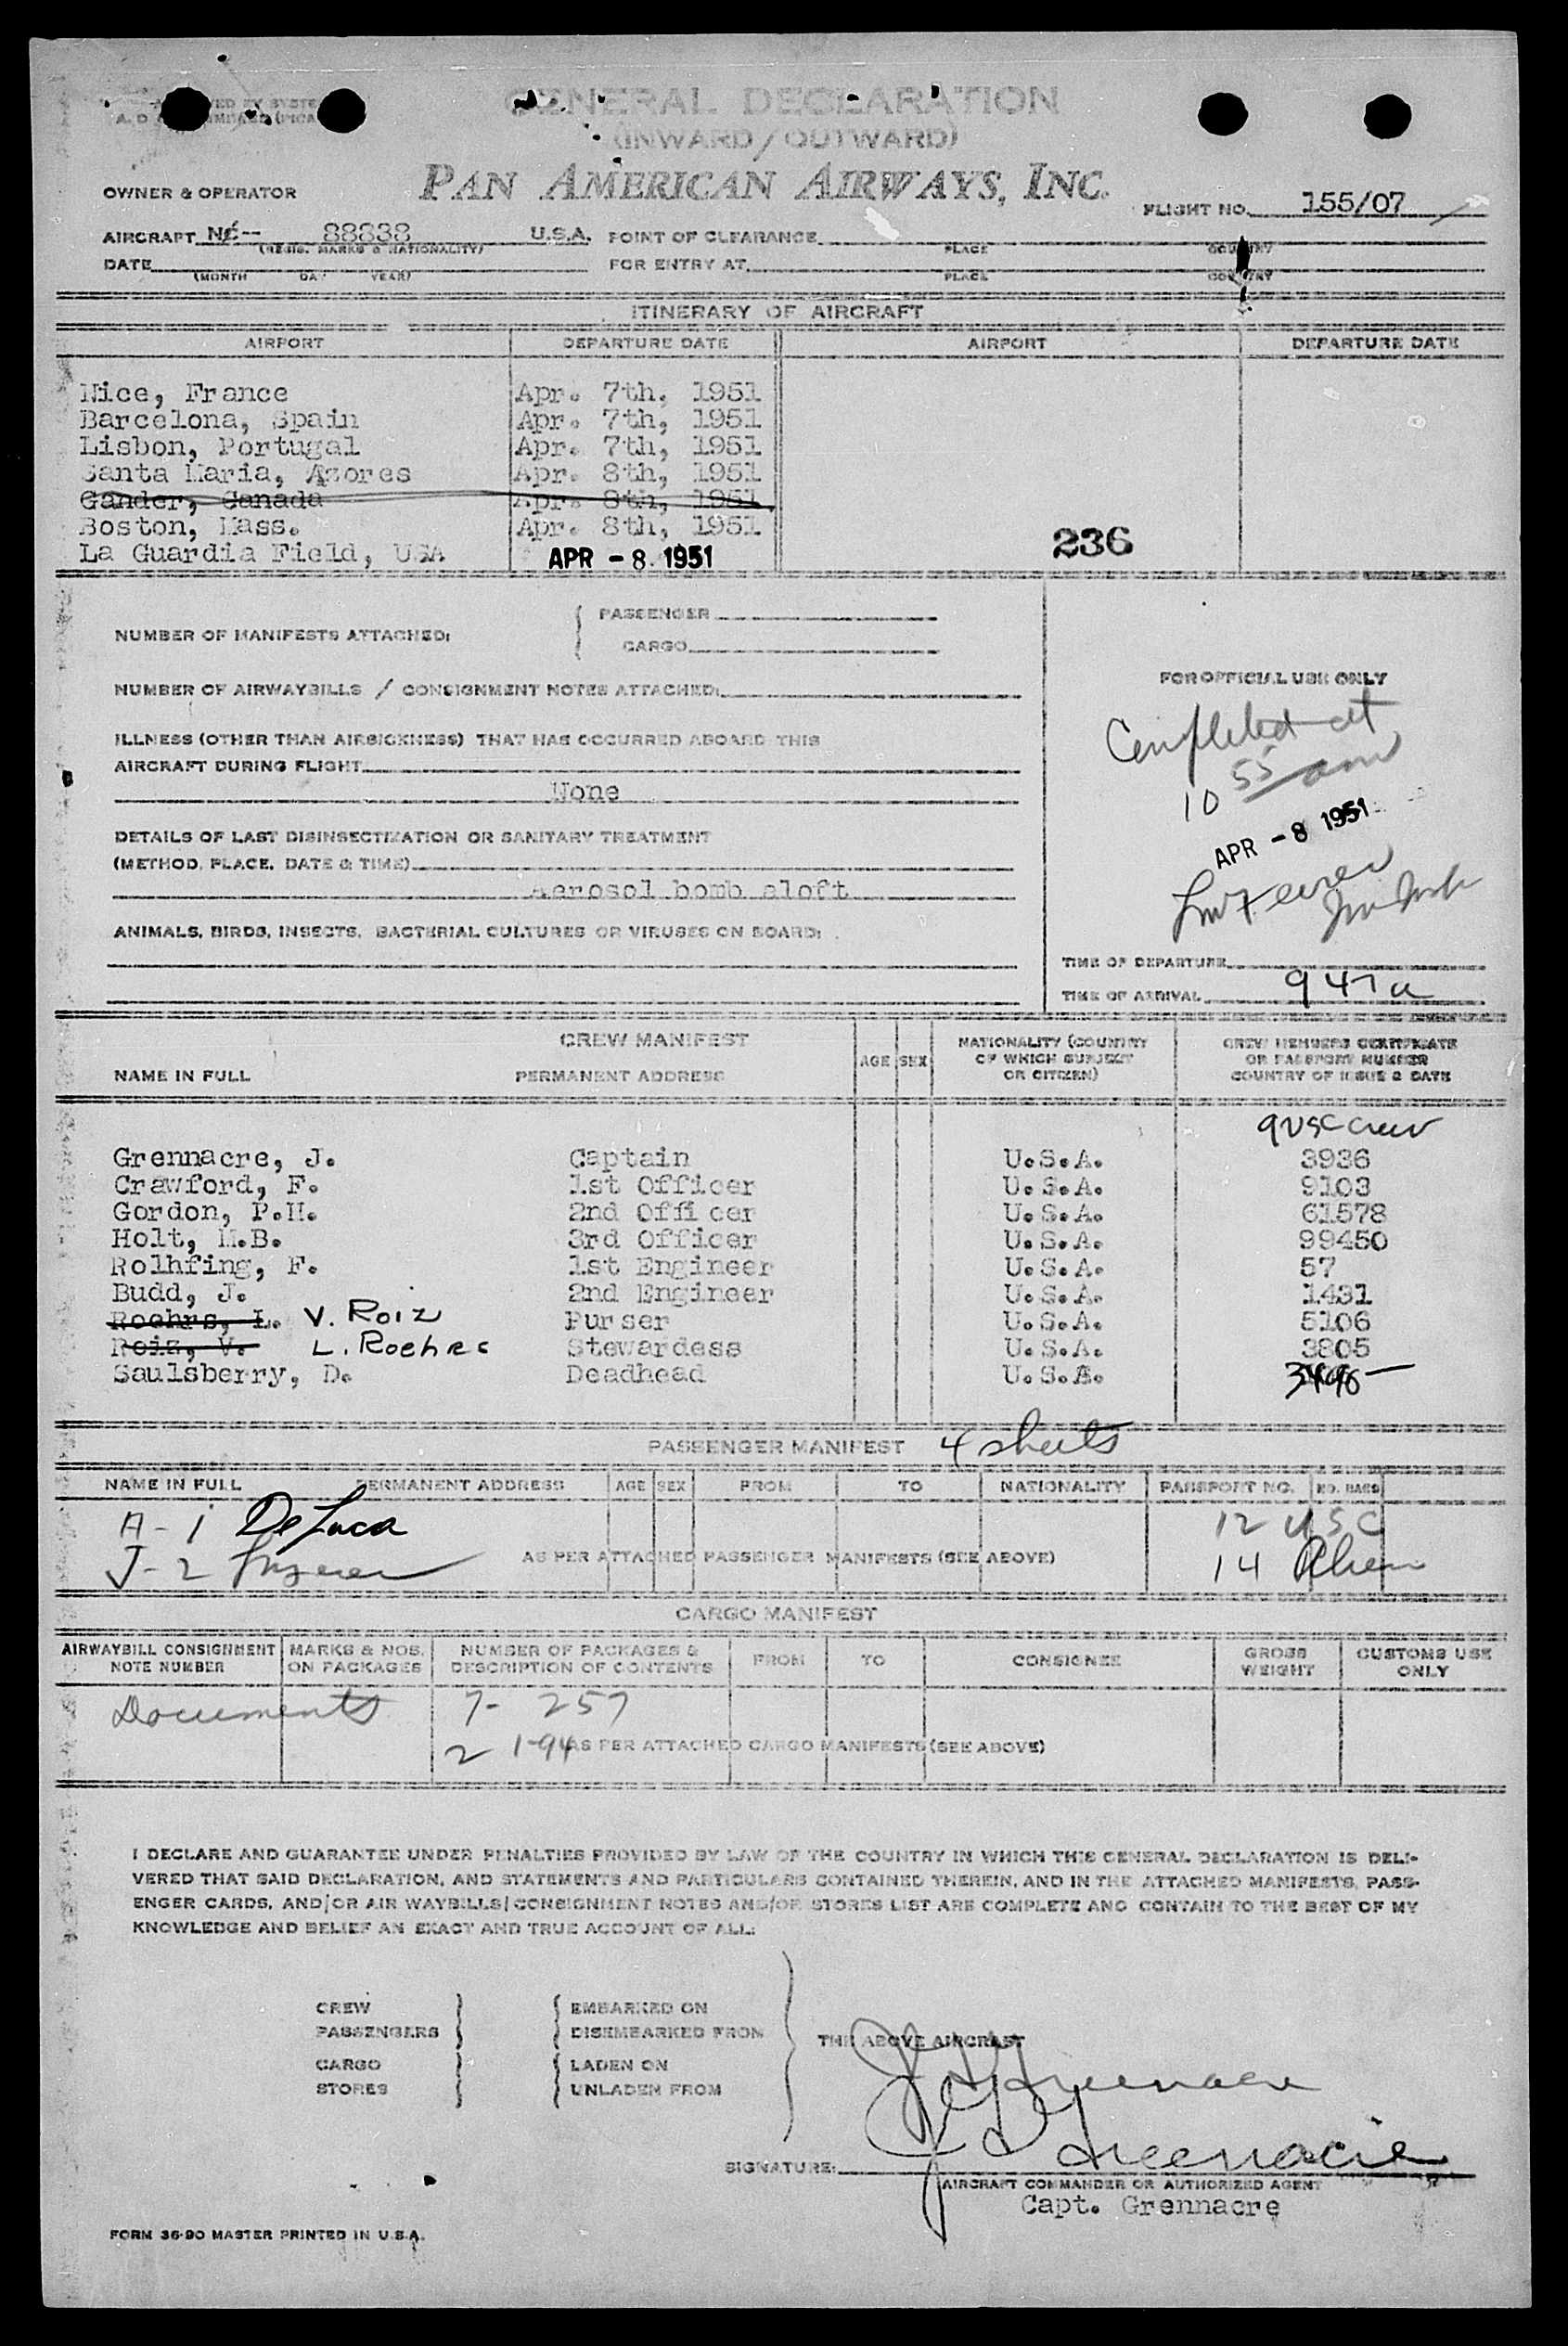 GENERAL DECLARATION
(INWARD / OUTWARD)
PAN AMERICAN AIRWAYS, INC.
OWNER & OPERATOR
FLIGHT NO. 155/07
AIRCRAFT 88838 U.S.A. POINT OF CLEARANCE
(REGIS. MARKS & NATIONALITY) PLACE COUNTRY
DATE FOR ENTRY AT
(MONTH DAY YEAR) PLACE COUNTRY
ITINERARY OF AIRCRAFT
AIRPORT DEPARTURE DATE AIRPORT DEPARTURE DATE
Nice, France Apr. 7th, 1951
Barcelona, Spain Apr. 7th, 1951
Lisbon, Portugal Apr. 7th, 1951
Santa Maria, Azores Apr. 8th, 1951
Gander, Canada Apr. 8th, 1951
Boston, Mass. Apr. 8th, 1951
236
La Guardia Field, USA APR - 8 1951
NUMBER OF MANIFESTS ATTACHED: PASSENGER
CARGO
NUMBER OF AIRWAYBILLS / CONSIGNMENT NOTES ATTACHED:
FOR OFFICIAL USE ONLY
Completed at
10 55 am
APR - 8 1951
ILLNESS (OTHER THAN AIRSICKNESS) THAT HAS OCCURRED ABOARD THIS
AIRCRAFT DURING FLIGHT
None
DETAILS OF LAST DISINSECTIZATION OR SANITARY TREATMENT
(METHOD, PLACE, DATE & TIME)
Aerosol bomb aloft
ANIMALS, BIRDS, INSECTS, BACTERIAL CULTURES OR VIRUSES ON BOARD:
TIME OF DEPARTURE
TIME OF ARRIVAL 947a
CREW MANIFEST
NAME IN FULL PERMANENT ADDRESS AGE SEX NATIONALITY (COUNTRY OF WHICH SUBJECT OR CITIZEN) CREW MEMBERS CERTIFICATE OR PASSPORT NUMBER COUNTRY OF ISSUE & DATE
9 USC crew
Grennacre, J. Captain U.S.A. 3936
Crawford, F. 1st Officer U.S.A. 9103
Gordon, P.H. 2nd Officer U.S.A. 61578
Holt, M.B. 3rd Officer U.S.A. 99450
Rolhfing, F. 1st Engineer U.S.A. 57
Budd, J. 2nd Engineer U.S.A. 1431
Roehrs, L. V. Roiz Purser U.S.A. 5106
Roiz, V. L. Roehrs Stewardess U.S.A. 3805
Saulsberry, D. Deadhead U.S.A. 3496
PASSENGER MANIFEST 4 sheets
NAME IN FULL PERMANENT ADDRESS AGE SEX FROM TO NATIONALITY PASSPORT NO. NO. BAGS
A-1 DeLuca 12 USC
J-2 AS PER ATTACHED PASSENGER MANIFESTS (SEE ABOVE) 14 Alien
CARGO MANIFEST
AIRWAYBILL CONSIGNMENT NOTE NUMBER MARKS & NOS. ON PACKAGES NUMBER OF PACKAGES & DESCRIPTION OF CONTENTS FROM TO CONSIGNEE GROSS WEIGHT CUSTOMS USE ONLY
Documents 7- 257
2 1-94 AS PER ATTACHED CARGO MANIFESTS (SEE ABOVE)
I DECLARE AND GUARANTEE UNDER PENALTIES PROVIDED BY LAW OF THE COUNTRY IN WHICH THIS GENERAL DECLARATION IS DELI-
VERED THAT SAID DECLARATION, AND STATEMENTS AND PARTICULARS CONTAINED THEREIN, AND IN THE ATTACHED MANIFESTS, PASS-
ENGER CARDS, AND/OR AIR WAYBILLS/CONSIGNMENT NOTES AND/OR STORES LIST ARE COMPLETE AND CONTAIN TO THE BEST OF MY
KNOWLEDGE AND BELIEF AN EXACT AND TRUE ACCOUNT OF ALL:
CREW EMBARKED ON
PASSENGERS DISEMBARKED FROM
THE ABOVE AIRCRAFT
CARGO LADEN ON
STORES UNLADEN FROM
J Greenacre
J Greenacre
SIGNATURE:
AIRCRAFT COMMANDER OR AUTHORIZED AGENT
Capt. Grennacre
FORM 36-90 MASTER PRINTED IN U.S.A.